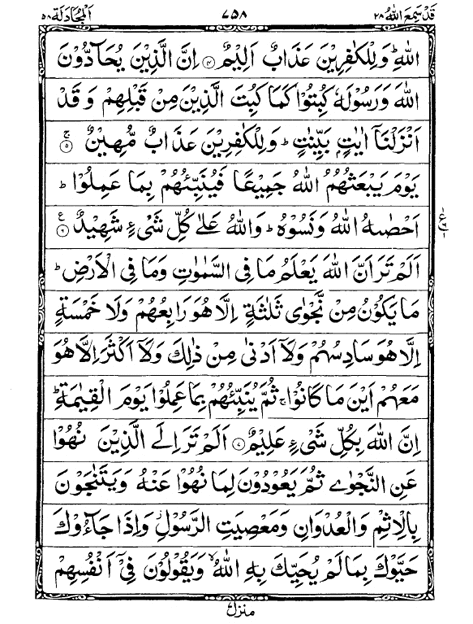 قد سمع الله ٢٨ ٧٥٨ المجادلة ٥٨
اللهِ ؕ وَلِلۡكٰفِرِيۡنَ عَذَابٌ اَلِيۡمٌ ۞ اِنَّ الَّذِيۡنَ يُحَآدُّوۡنَ
اللهَ وَرَسُوۡلَهٗ كُبِتُوۡا كَمَا كُبِتَ الَّذِيۡنَ مِنۡ قَبۡلِهِمۡ وَ قَدۡ
اَنۡزَلۡنَاۤ اٰيٰتٍۢ بَيِّنٰتٍ ؕ وَلِلۡكٰفِرِيۡنَ عَذَابٌ مُّهِيۡنٌ ۞
يَوۡمَ يَبۡعَثُهُمُ اللهُ جَمِيۡعًا فَيُنَبِّئُهُمۡ بِمَا عَمِلُوۡا ؕ
اَحۡصٰىهُ اللهُ وَنَسُوۡهُ ؕ وَاللهُ عَلٰى كُلِّ شَىۡءٍ شَهِيۡدٌ ۞
اَلَمۡ تَرَ اَنَّ اللهَ يَعۡلَمُ مَا فِى السَّمٰوٰتِ وَمَا فِى الۡاَرۡضِ ؕ
مَا يَكُوۡنُ مِنۡ نَّجۡوٰى ثَلٰثَةٍ اِلَّا هُوَ رَابِعُهُمۡ وَلَا خَمۡسَةٍ
اِلَّا هُوَ سَادِسُهُمۡ وَلَاۤ اَدۡنٰى مِنۡ ذٰلِكَ وَلَاۤ اَكۡثَرَ اِلَّا هُوَ
مَعَهُمۡ اَيۡنَ مَا كَانُوۡا ۚ ثُمَّ يُنَبِّئُهُمۡ بِمَا عَمِلُوۡا يَوۡمَ الۡقِيٰمَةِ ؕ
اِنَّ اللهَ بِكُلِّ شَىۡءٍ عَلِيۡمٌ ۞ اَلَمۡ تَرَ اِلَى الَّذِيۡنَ نُهُوۡا
عَنِ النَّجۡوٰى ثُمَّ يَعُوۡدُوۡنَ لِمَا نُهُوۡا عَنۡهُ وَيَتَنٰجَوۡنَ
بِالۡاِثۡمِ وَالۡعُدۡوَانِ وَمَعۡصِيَتِ الرَّسُوۡلِ وَاِذَا جَآءُوۡكَ
حَيَّوۡكَ بِمَا لَمۡ يُحَيِّكَ بِهِ اللهُ ۙ وَيَقُوۡلُوۡنَ فِىۡۤ اَنۡفُسِهِمۡ